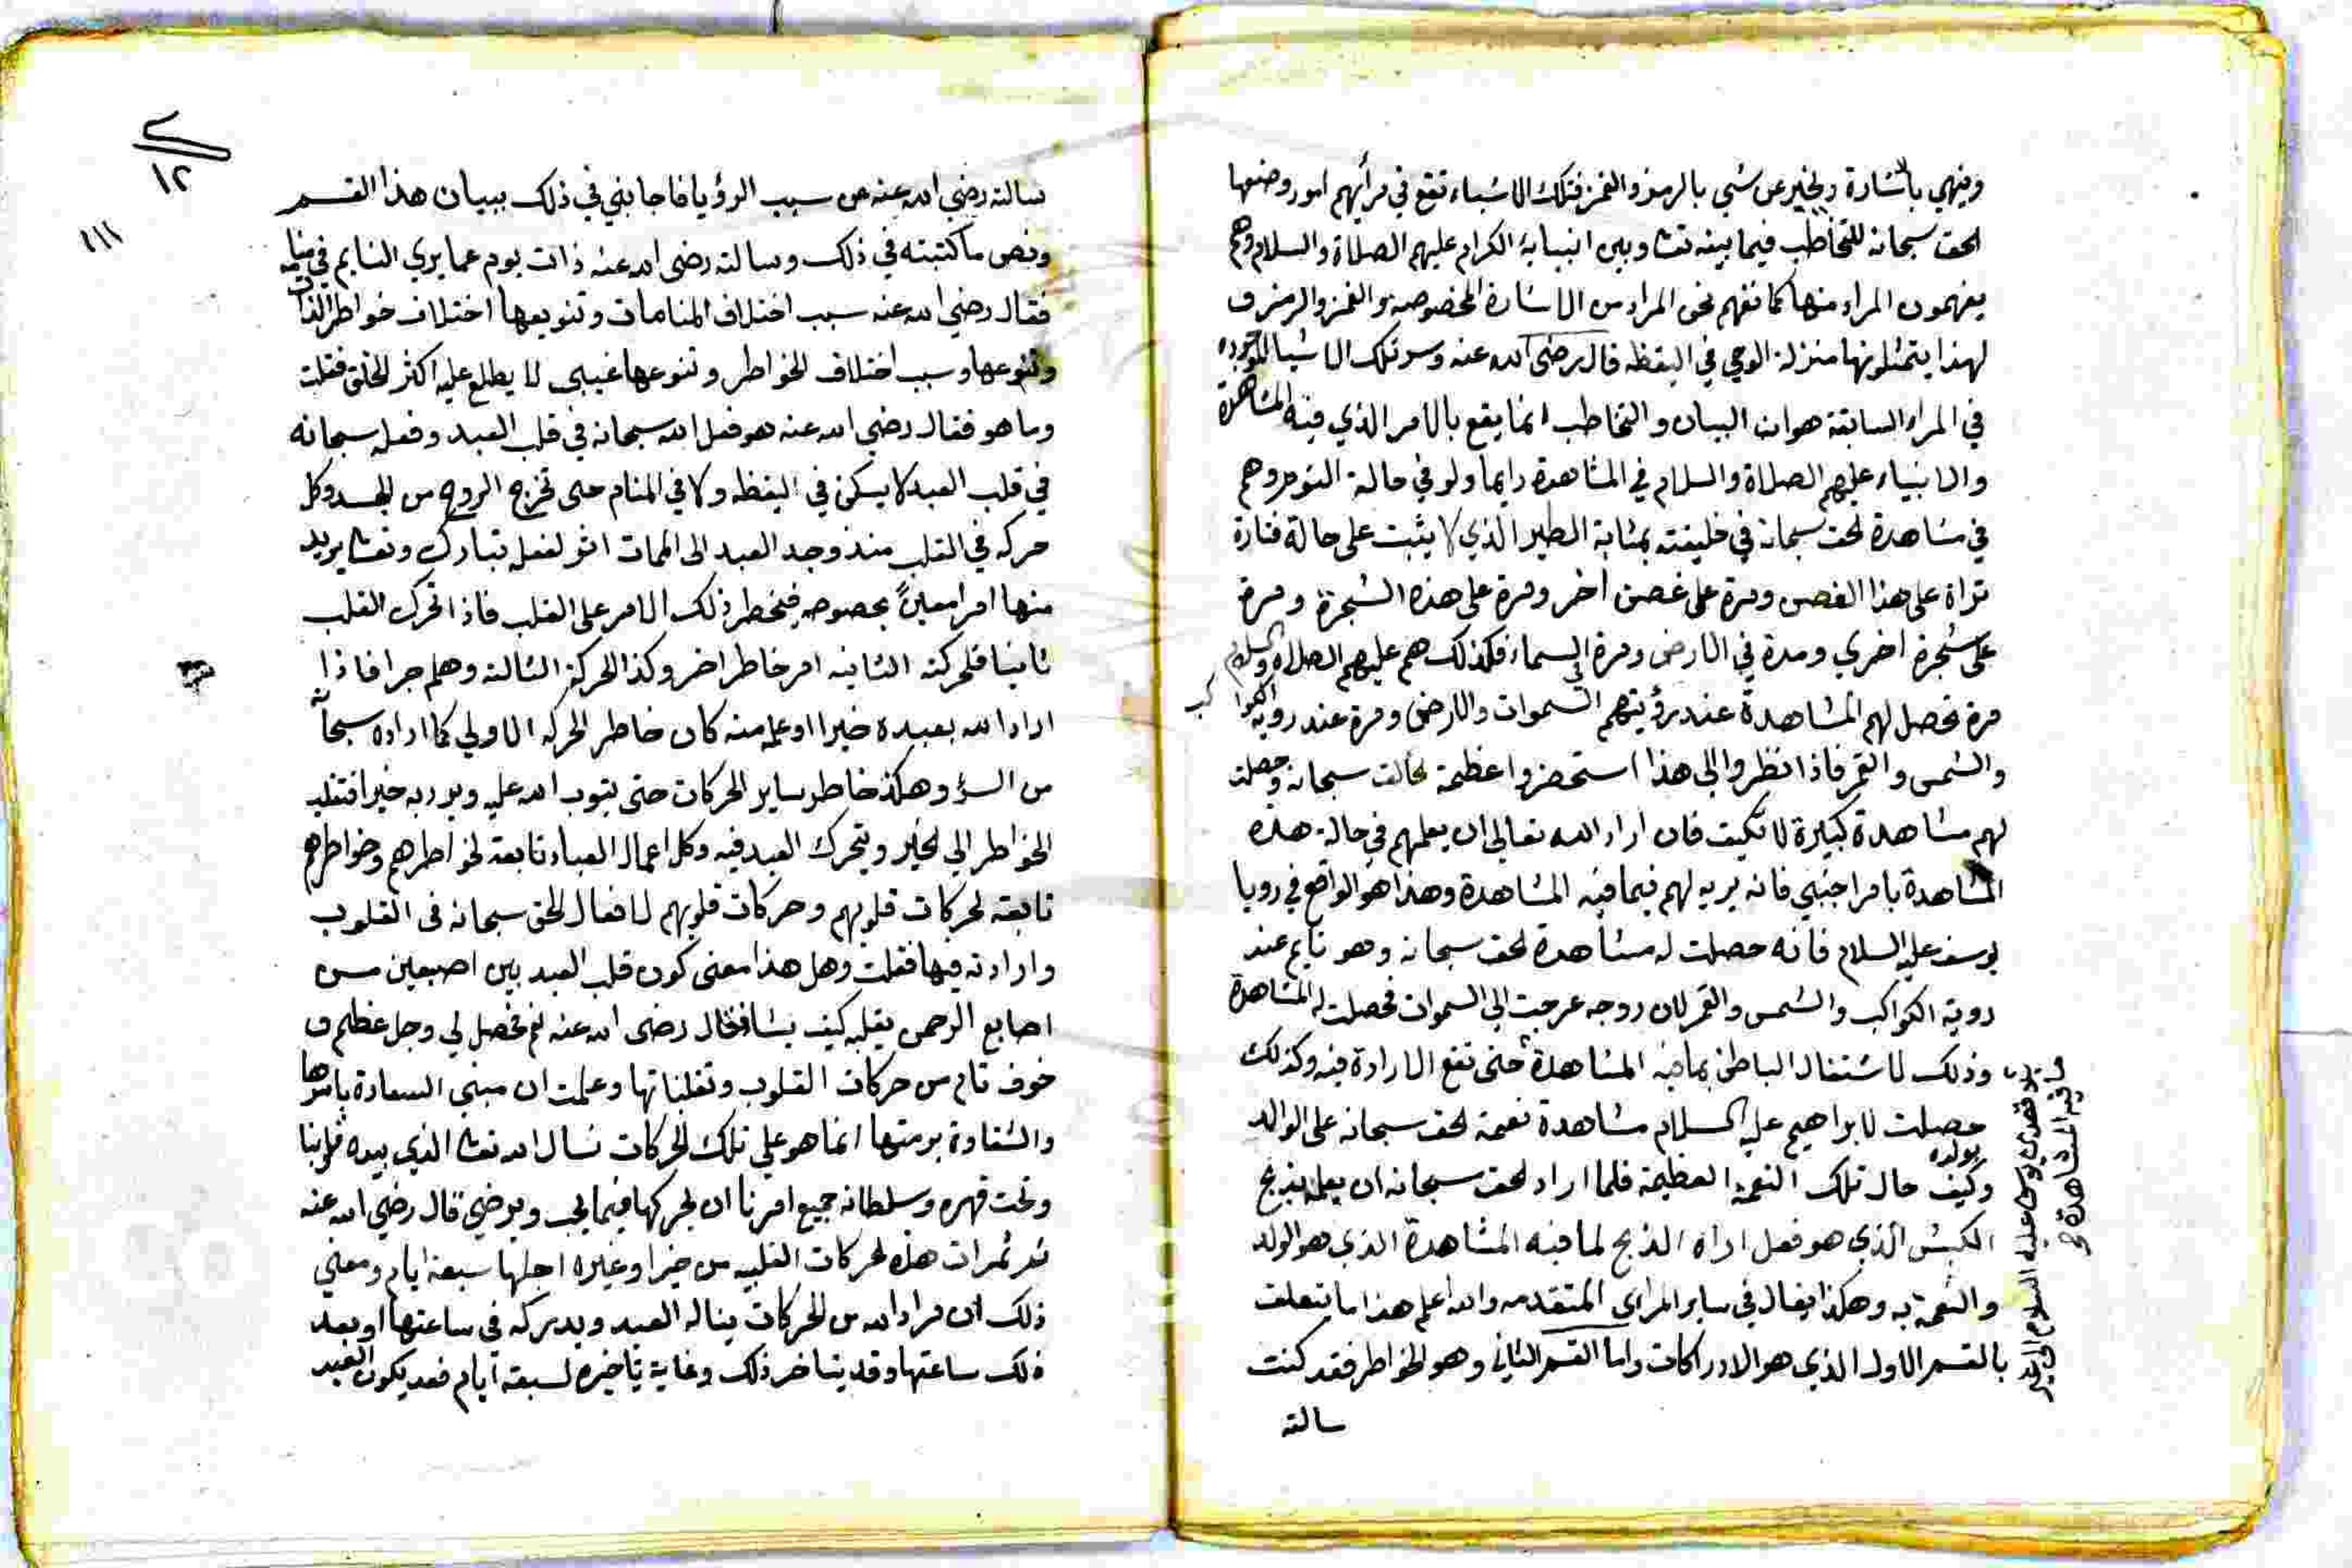 وينهي باشارة ويخبر عن شي بالرمز والغمز فتلك الاشياء تقع في مرأيهم امور وضعها
الحق سبحانه للتخاطب فيما بينه تعا وبين انبيايه الكرام عليهم الصلاة والسلام وهم
يفهمون المراد منها كما نفهم نحن المراد من الاشارة المخصوصه والغمز والرمز ف
لهذا يتمثلونها منزلة الوحي في اليقظه قال رضي الله عنه وسر تلك الاشيا الموجوده
في المراء السابقة هو ان البيان والتخاطب انما يقع بالامر الذي فيه المشاهدة
والانبياء عليهم الصلاة والسلام في المشاهدة دايما ولو في حالة النوم وهم
في مشاهدة الحق سبحانه في خليقته بمثابة الطير الذي لا يثبت على حالة فتارة
تراه على هذا الغصن ومرة على غصن اخر ومرة على هذه الشجرة ومرة
على شجرة اخري ومدة في الارض ومرة الى السماء فكذلك هم عليهم الصلاة والسلام
مرة تحصل لهم المشاهدة عند رؤيتهم السموات والارض ومرة عند روية الكواكب
والشمس والقمر فاذا نظروا الى هذا استحضروا عظيمة خالقه سبحانه وحصلت
لهم مشاهدة كبيرة لا تكيف فان اراد الله تعالى ان يعلمهم في حالة هذه
المشاهدة بامر اجنبي فانه يريه لهم فيما فيه المشاهدة وهذا هو الواقع في رويا
يوسف عليه السلام فانه حصلت له مشاهدة الحق سبحانه وهو نايم عند
روية الكواكب والشمس والقمر لان روحه عرجت الى السموات فحصلت له المشاهدة
وذلك لاشتغال الباطن بما فيه المشاهدة حتى تقع الارادة فيه وكذلك
حصلت لابراهيم عليه السلام مشاهدة نعمة الحق سبحانه على الوالد
بولده
وكيف حال تلك النعمة العظيمة فلما اراد الحق سبحانه ان يعلمه بذبح
الكبش الذي هو فعل اراه الذبح لما فيه المشاهدة الذي هو الولد
والنعمة به وهكذا يقال في ساير المراى المتقدمه والله اعلم هذا ما يتعلق
بالقسم الاول الذي هو الادراكات واما القسم الثاني وهو الخواطر فقد كنت
سالته
يوسف عليه السلام الى
فيه المشاهدة
١٢
١١١
سالته رضي الله عنه عن سبب الرؤيا فاجابني في ذلك ببيان هذا القسم
ونص ما كتبته في ذلك وسالته رضي الله عنه ذات يوم عما يري النايم في منامه
فقال رضي الله عنه سبب اختلاف المنامات وتنويعها اختلاف خواطر الذات
وتنوعها وسبب اختلاف الخواطر وتنوعها غيبى لا يطلع عليه اكثر الخلق فقلت
وما هو فقال رضي الله عنه هو فعل الله سبحانه في قلب العبد وفعله سبحانه
في قلب العبد لا يسكن في اليقظه ولا في المنام حتى تخرج الروح من الجسد وكل
حركه في القلب منذ وجد العبد الى الممات اثر لفعله تبارك وتعا يريد
منها امرا معينا بخصوصه فيخطر ذلك الامر على القلب فاذا تحرك القلب
ثانيا فلحركته الثانيه امر خاطر اخر وكذا الحركة الثالثة وهلم جرا فاذا
اراد الله بعبده خيرا او علمه منه كان خاطر الحركه الاولي كما اراده سبحانه
من السؤ وهكذ خاطر ساير الحركات حتى يتوب الله عليه ويريد به خيرا فتنقلب
الخواطر الي الخير ويتحرك العبد فيه وكل اعمال العباد تابعة لخواطرهم وخواطرهم
تابعة لحركات قلوبهم وحركات قلوبهم لافعال الحق سبحانه فى القلوب
وارادته فيها فقلت وهل هذا معنى كون قلب العبد بين اصبعين من
اصابع الرحمن يقلبه كيف يشا فقال رضى الله عنه نعم فحصل لي وجل عظيم و
خوف تام من حركات القلوب وتقلباتها وعلمت ان مبنى السعادة باسرها
والشقاوة برمتها انما هو على تلك الحركات نسال الله تعا الذي بيده قلوبنا
وتحت قهره وسلطانه جميع امرنا ان يحركها فيما يحب ويرضي قال رضي الله عنه
ثم ثمرات هذه الحركات القلبيه من خير او غيره اجلها سبعة ايام ومعني
ذلك ان مراد الله من الحركات يناله العبد ويدركه في ساعتها او بعد
ذلك ساعتها وقد يتاخر ذلك وغاية تاخيره لسبعة ايام فقد يكون العبد